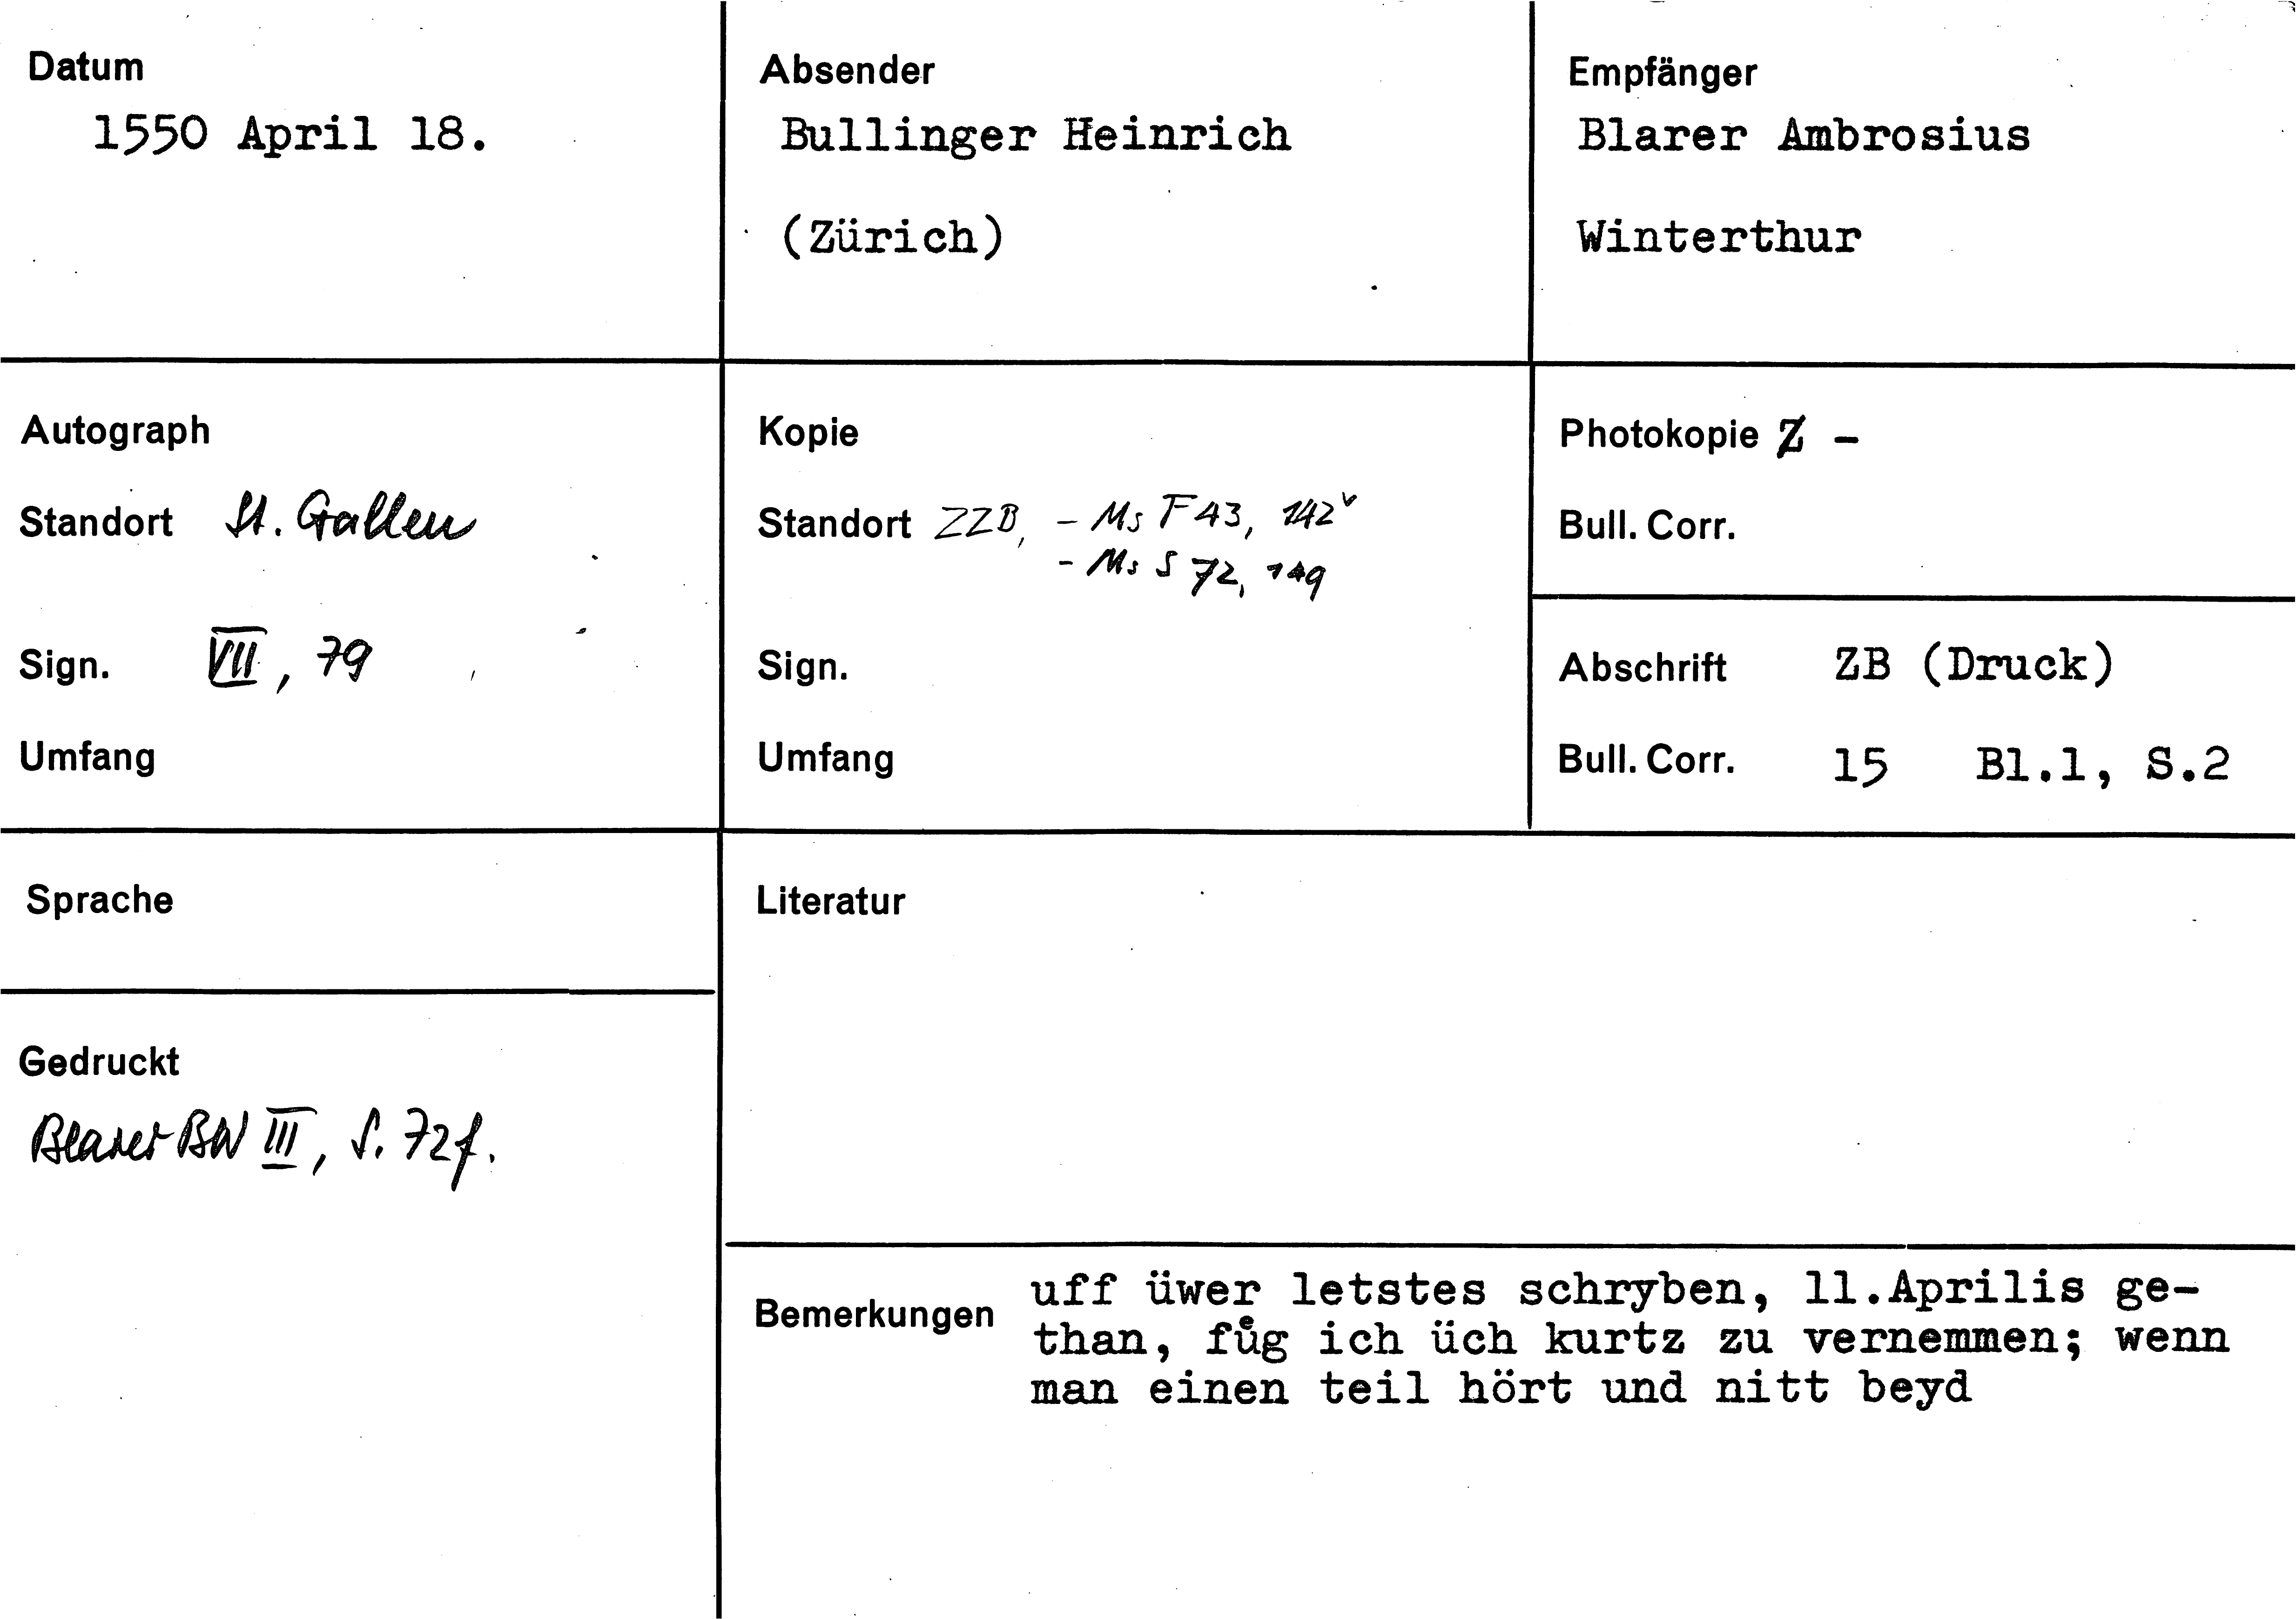 Datum
1550 April 18.
Absender
Bullinger Heinrich
(Zürich)
Empfänger
Blarer Ambrosius
Winterthur
Autograph
Standort St. Gallen
Sign. VII, 79
Umfang
Kopie
Standort ZZB, - Ms F 43, 142v
- Ms S 72, 149
Sign.
Umfang
Photokopie Z -
Bull. Corr.
Abschrift ZB (Druck)
Bull. Corr. 15 Bl.1, S.2
Sprache
Gedruckt
Blarer BW III, S. 72f.
Literatur
Bemerkungen
uff üwer letstes schryben, 11.Aprilis ge-
than, fuͤg ich üch kurtz zu vernemmen; wenn
man einen teil hört und nitt beyd